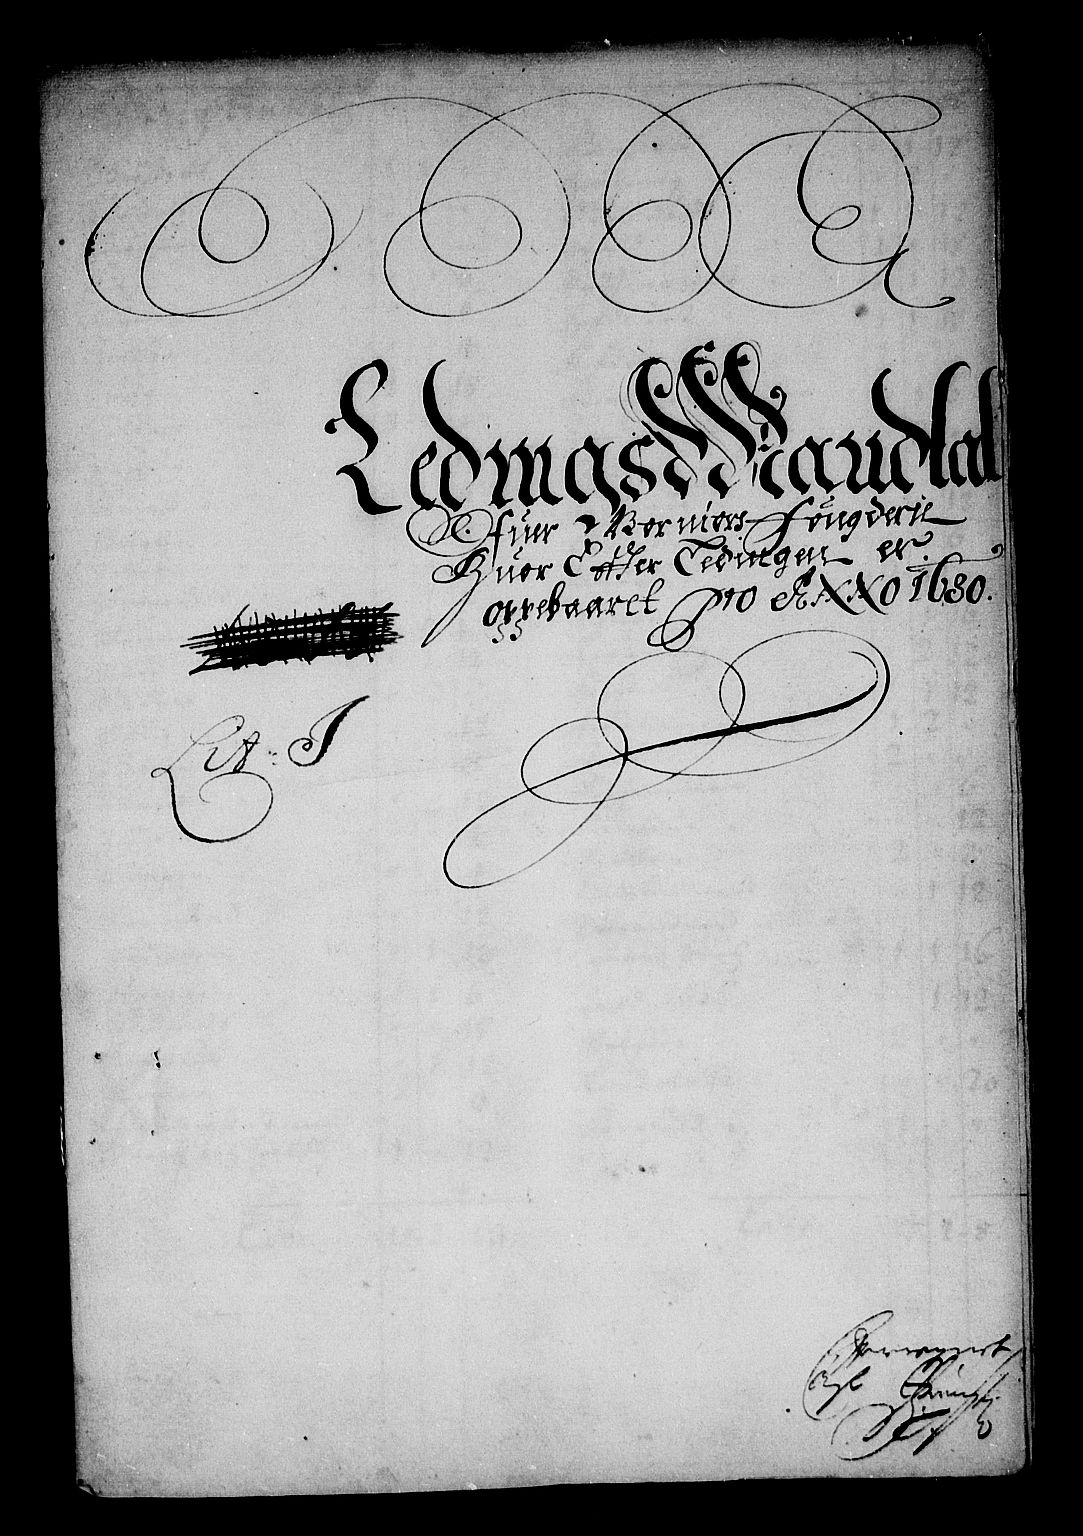 Ledings Mandtal
Ofuer Borniers Fougderie
Huor Effter Ledingen er
oppebaaret pro ANNO 1680.
Lit: I